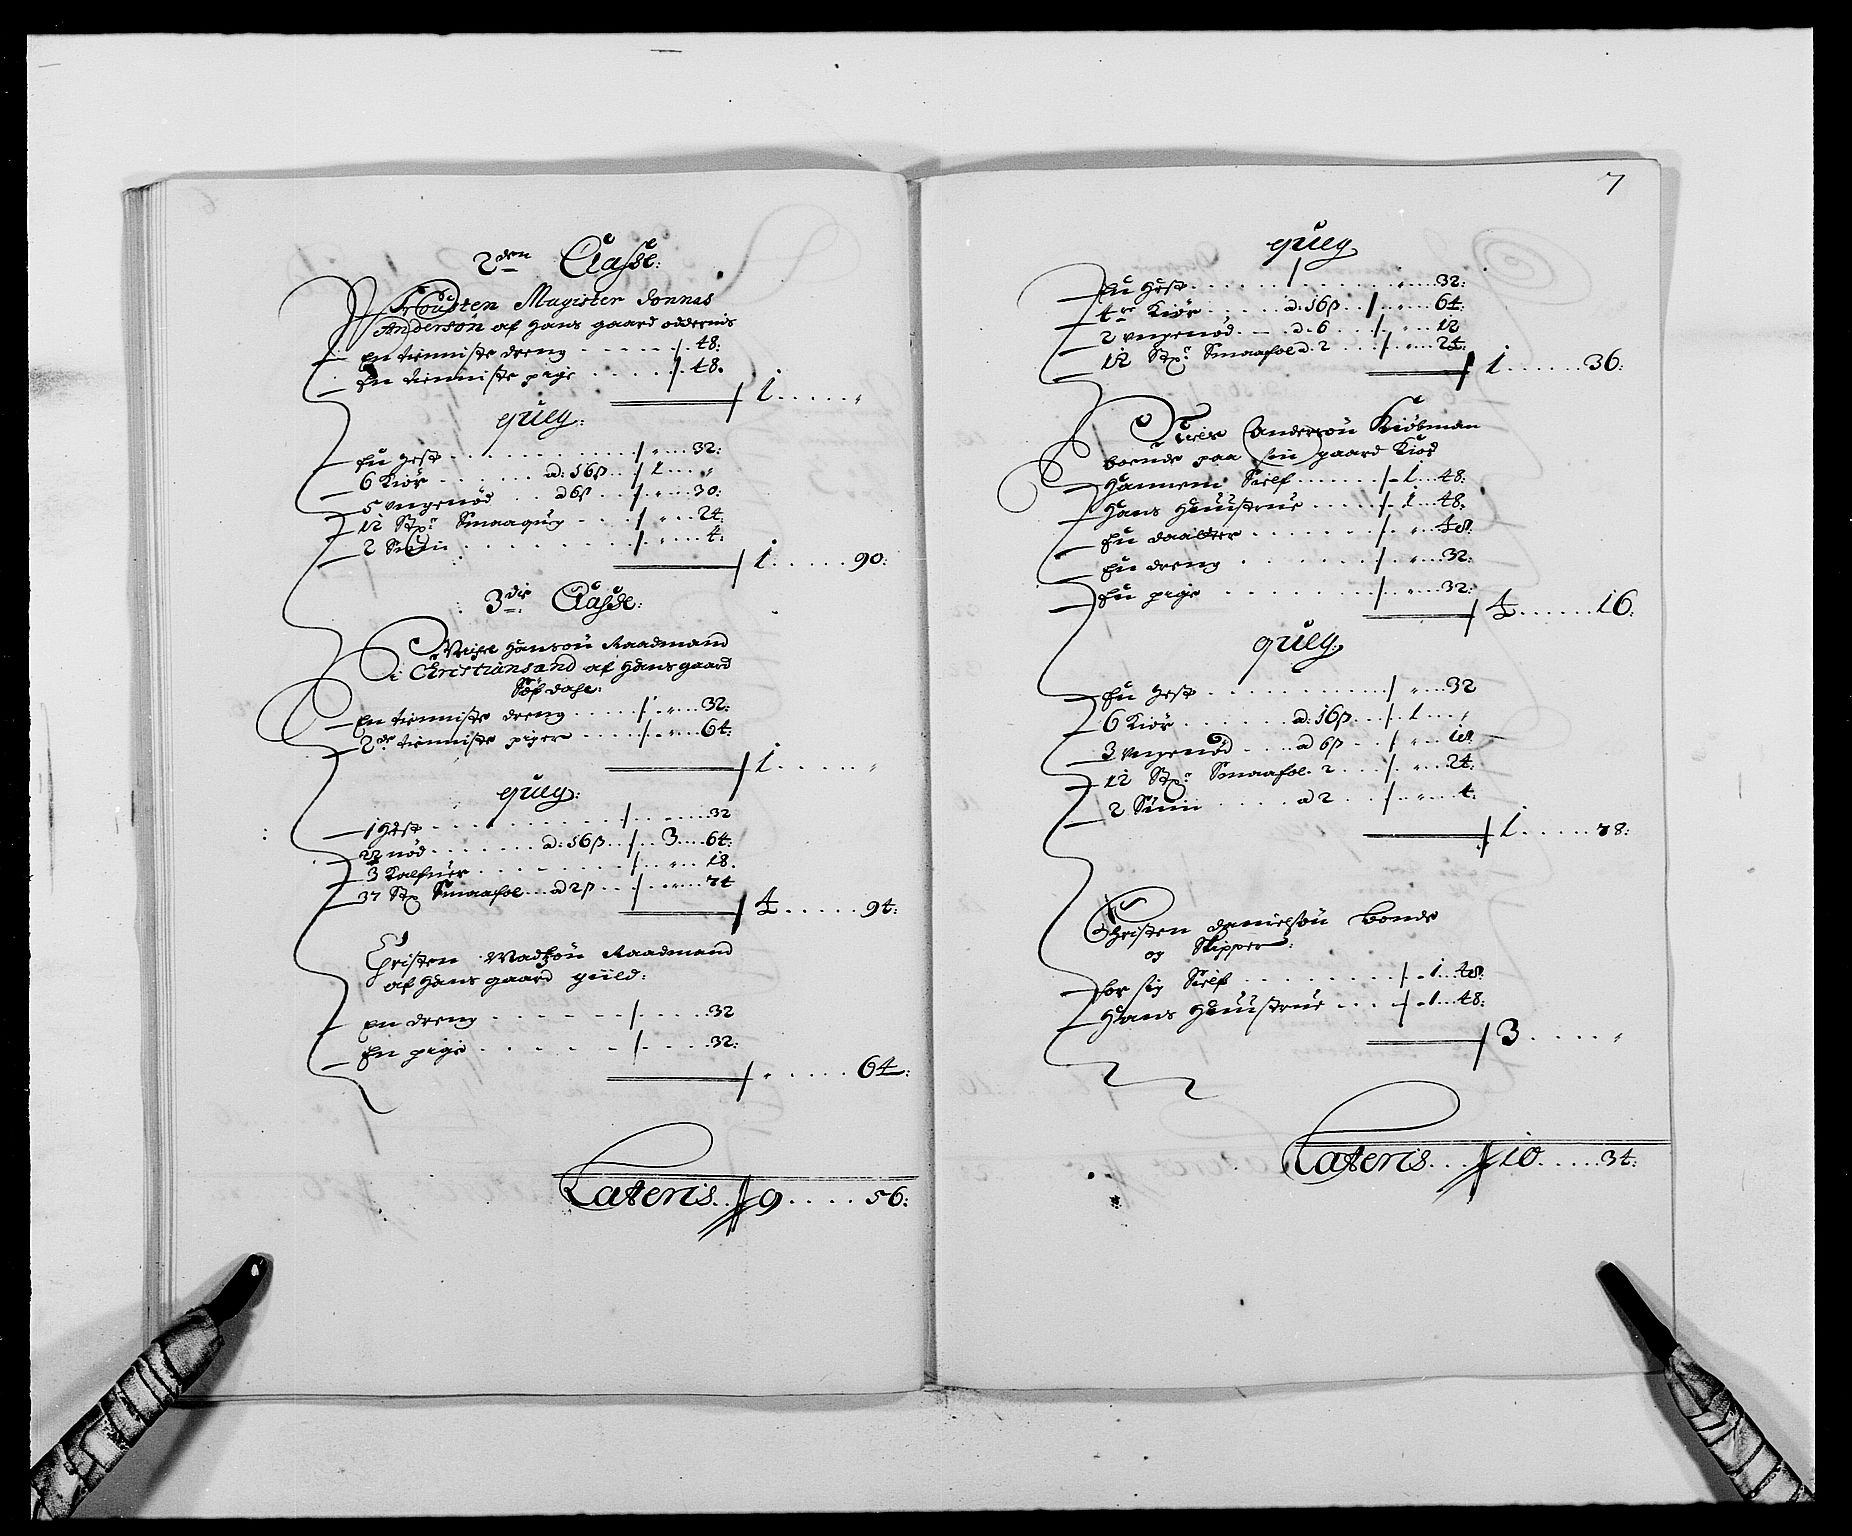 2den Classe:
Prousten Magister Jonnas
Andersøn af hans gaard odderniss
En tienniste dreng . . . . . 48:
En tienniste pige . . . . . 48.
1 . . . . . "
queg:
En hest . . . . . " . . . 32:
6 Kiør . . . . . a: 16ß . . 1 . . . "
5 ungenød . . a 6ß . . " . . . 30:
12 Stpr Smaaqueg . . . " . . . 24:
2 Suin . . . . . " . . . 4:
1 . . . . . 90:
3die Classe:
Hansøn Raadmand
i Christiansand af hans gaard
dahl:
En tienniste dreng . . . . . " . . . 32:
2de tienniste piger . . . . . " . . . 64:
1 . . . . . "
queg:
1 hest . . . . . 32
22 nød . . . . . a: 16ß . . 3 . . . 64:
3 Kalfuer . . . . . " . . . 18.
37 Stp Smaafol . . a 2ß . . " . . . 74
4 . . . . . 94:
Christen Madsøn Raadmand
af hans gaard giild:
En dreng . . . . . 32
En pige . . . . . 32:
" . . . . . 64:
Lateris . . 9 . . . . . 56:
7
queg
En hest . . . . . " . . . 32:
4re Kiør . . . . . a: 16ß . . " . . . 64:
2 ungenød . . . a. 6 . . . " . . . 12
12 Stpr Smaafol a 2 . . . " . . . 24:
1 . . . . . 36:
Andersøn Kiøbmand
boende paa sin gaard Kiøs
Hannem Sielf . . . . . 1 . . 48:
Hans Huustrue . . . . . 1 . . 48.
En daatter . . . . . " . . . 48
En dreng . . . . . " . . . 32:
En pige . . . . . " . . . 32:
4 . . . . . 16:
queg:
En hest . . . . . " . . . 32
6 Kiør . . . . . a: 16ß . . 1 . . . "
3 ungenød . . . a 6ß . . " . . . 18
12 Stpr Smaafol. 2 . . . " . . . 24:
2 Suin . . . . a 2 . . . " . . . 4:
1 . . . . . 78:
Christen Danielsøn bonde
og Skipper:
for sig Sielf . . . . . 1 . . 48:
Hans Huustrue . . . . 1 . . 48:
3 . . . . . "
Lateris . . . 10 . . . . . 34: